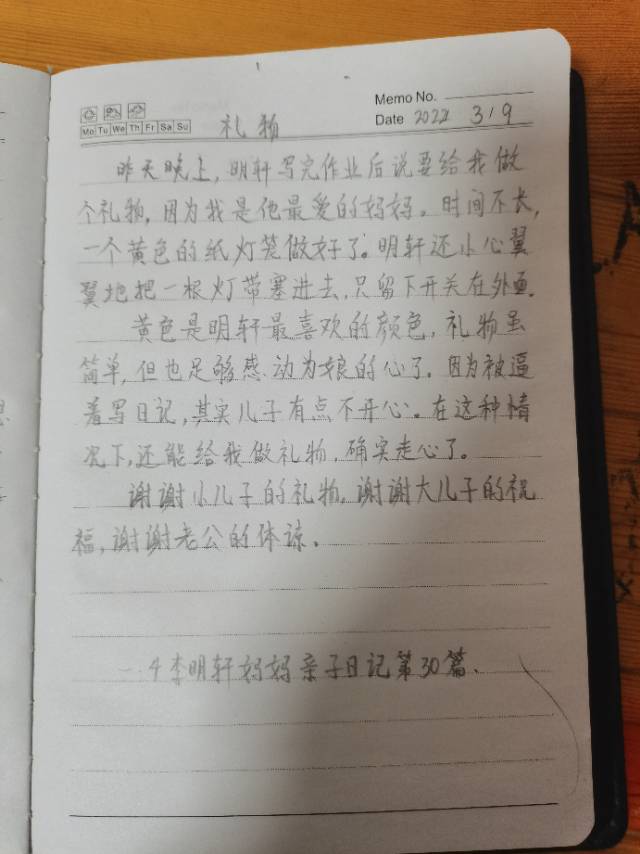 Memo No.
Mo Tu We Th Fr Sa Su
Date 2022 3/9
礼物
昨天晚上,明轩写完作业后说要给我做
个礼物,因为我是他最爱的妈妈。时间不长,
一个黄色的纸灯笼做好了。明轩还小心翼
翼地把一根灯带塞进去,只留下开关在外面.
黄色是明轩最喜欢的颜色,礼物虽
简单,但也足够感动为娘的心了。因为被逼
着写日记,其实儿子有点不开心。在这种情
况下,还能给我做礼物,确实走心了。
谢谢小儿子的礼物,谢谢大儿子的祝
福,谢谢老公的体谅.
一.4李明轩妈妈亲子日记第30篇.